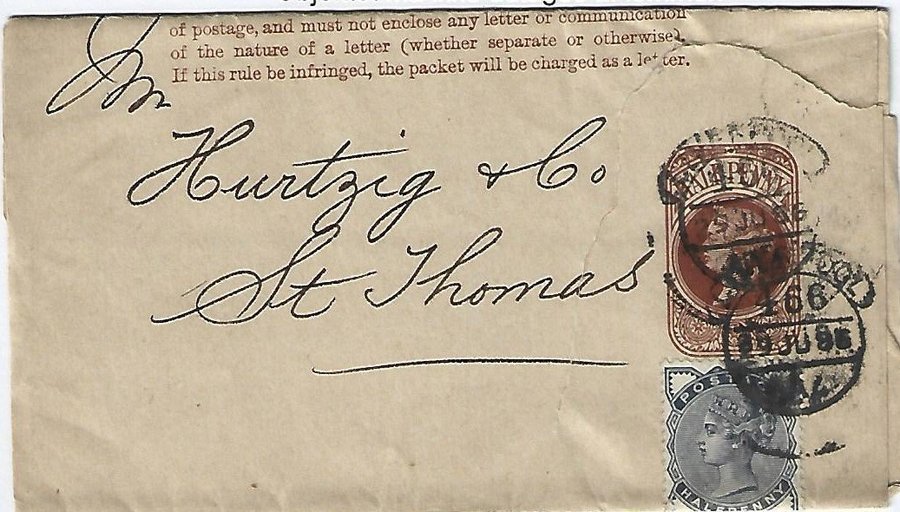 of postage, and must not enclose any letter or communication
of the nature of a letter (whether separate or otherwise).
If this rule be infringed, the packet will be charged as a letter.
Hurtzig & Co
St Thomas
HALFPENNY
466
29 JU 86
POSTAGE
HALFPENNY